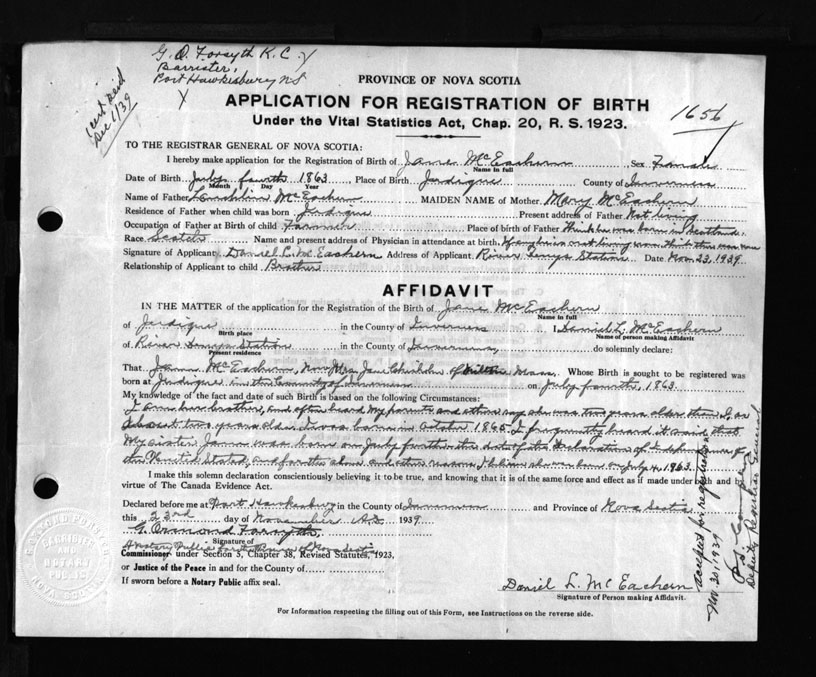 G. O. Forsyth K.C.
Barrister,
Port Hawkesbury N S
1 cert paid
Dec 1/39
PROVINCE OF NOVA SCOTIA
APPLICATION FOR REGISTRATION OF BIRTH
Under the Vital Statistics Act, Chap. 20, R. S. 1923.
1656
TO THE REGISTRAR GENERAL OF NOVA SCOTIA:
I hereby make application for the Registration of Birth of Jane McEachern, Sex Female
Name in full
Date of Birth July fourth 1863, Place of Birth Judique County of Inverness
Month Day Year
Name of Father Lauchlin McEachern MAIDEN NAME of Mother Mary McEachern
Residence of Father when child was born Judique Present address of Father Not living
Occupation of Father at Birth of child Farmer Place of birth of Father Think he was born in Scotland.
Race Scotch Name and present address of Physician in attendance at birth. If any he is not living now. think there was none
Signature of Applicant Daniel L. McEachern Address of Applicant River Denys Station Date Nov. 23, 1939
Relationship of Applicant to child Brother
AFFIDAVIT
IN THE MATTER of the application for the Registration of the Birth of Jane McEachern
Name in full
of Judique in the County of Inverness I, Daniel L. McEachern
Birth place Name of person making Affidavit
of River Denys Station in the County of Inverness, do solemnly declare:
Present residence
That Jane McEachern, now Mrs. Jane Chisholm of Milton Mass. Whose Birth is sought to be registered was
born at Judique in the County of Inverness on July fourth, 1863.
My knowledge of the fact and date of such Birth is based on the following Circumstances:
I am her brother, and often heard my parents and others say she was two years older than I, or
almost two years older. I was born in October 1865. I frequently heard it said that
my sister Jane was born on July fourth the date of the Declaration of Independence of
the United States, and for the above and other reasons, I believe she was born on July 4, 1863.
I make this solemn declaration conscientiously believing it to be true, and knowing that it is of the same force and effect as if made under oath and by
virtue of The Canada Evidence Act.
Declared before me at Port Hawkesbury in the County of Inverness and Province of Nova Scotia
this 23rd day of November A.D. 1939
G. Ormond Forsyth
Signature of
A Notary Public for the Province of Nova Scotia
Commissioner under Section 3, Chapter 38, Revised Statutes, 1923,
or Justice of the Peace in and for the County of
If sworn before a Notary Public affix seal.
Daniel L. McEachern
Signature of Person making Affidavit.
For Information respecting the filling out of this Form, see Instructions on the reverse side.
Accepted for registration
Nov 30, 1939
Deputy Registrar General
BARRISTER
AND
NOTARY
PUBLIC
NOVA SCOTIA